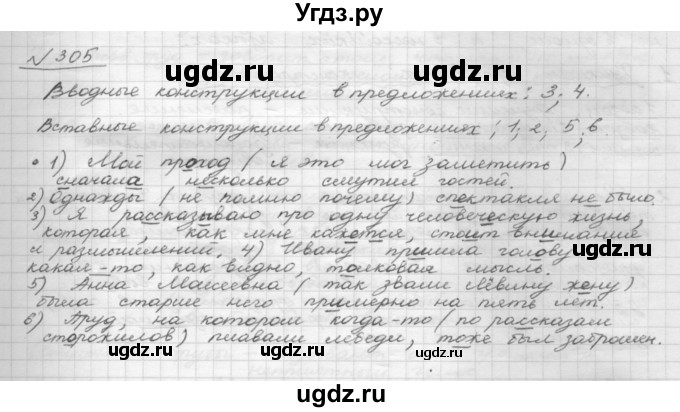 Угдз.ру
№305
Вводные конструкции в предложениях: 3; 4.
Вставные конструкции в предложениях; 1; 2, 5; 6.
• 1) Мой проход (я это мог заметить)
сначала несколько смутил гостей.
2) Однажды (не помню почему) спектакля не было.
3) Я рассказываю про одну человеческую жизнь,
которая, как мне кажется, стоит внимания
и размышлений. 4) Ивану пришла голову
какая-то, как видно, толковая мысль.
5) Анна Моисеевна (так звали Лёвину жену)
была старше него примерно на пять лет.
6) Пруд, на котором когда-то (по рассказам
сторожилов) плавали лебеди, тоже был заброшен.
ugdz.ru
ugdz.ru
ugdz.ru
ugdz.ru
ugdz.ru
ugdz.ru
ugdz.ru
ugdz.ru
ugdz.ru
ugdz.ru
ugdz.ru